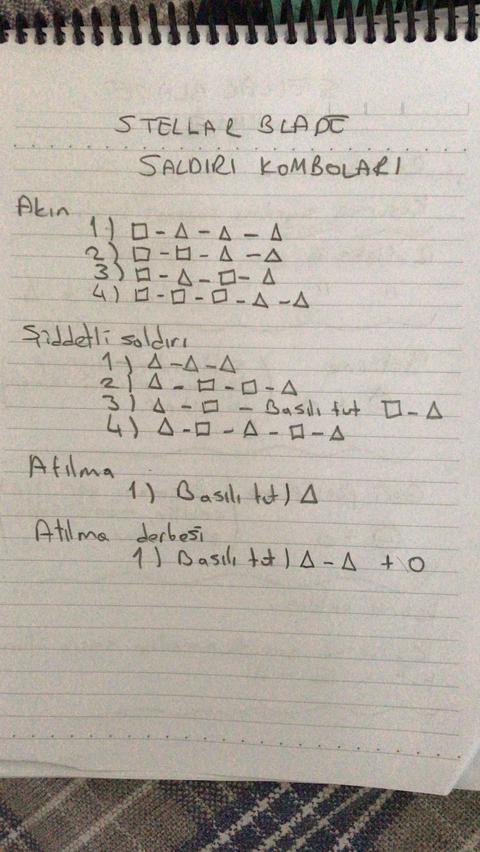 STELLAR BLADE
SALDIRI KOMBOLARI
Akın
1) □ - △ - △ - △
2) □ - □ - △ - △
3) □ - △ - □ - △
4) □ - □ - □ - △ - △
Şiddetli saldırı
1) △ - △ - △
2) △ - □ - □ - △
3) △ - □ - Basılı tut □ - △
4) △ - □ - △ - □ - △
Atılma
1) Basılı tut) △
Atılma derbesi
1) Basılı tut) △ - △ + O